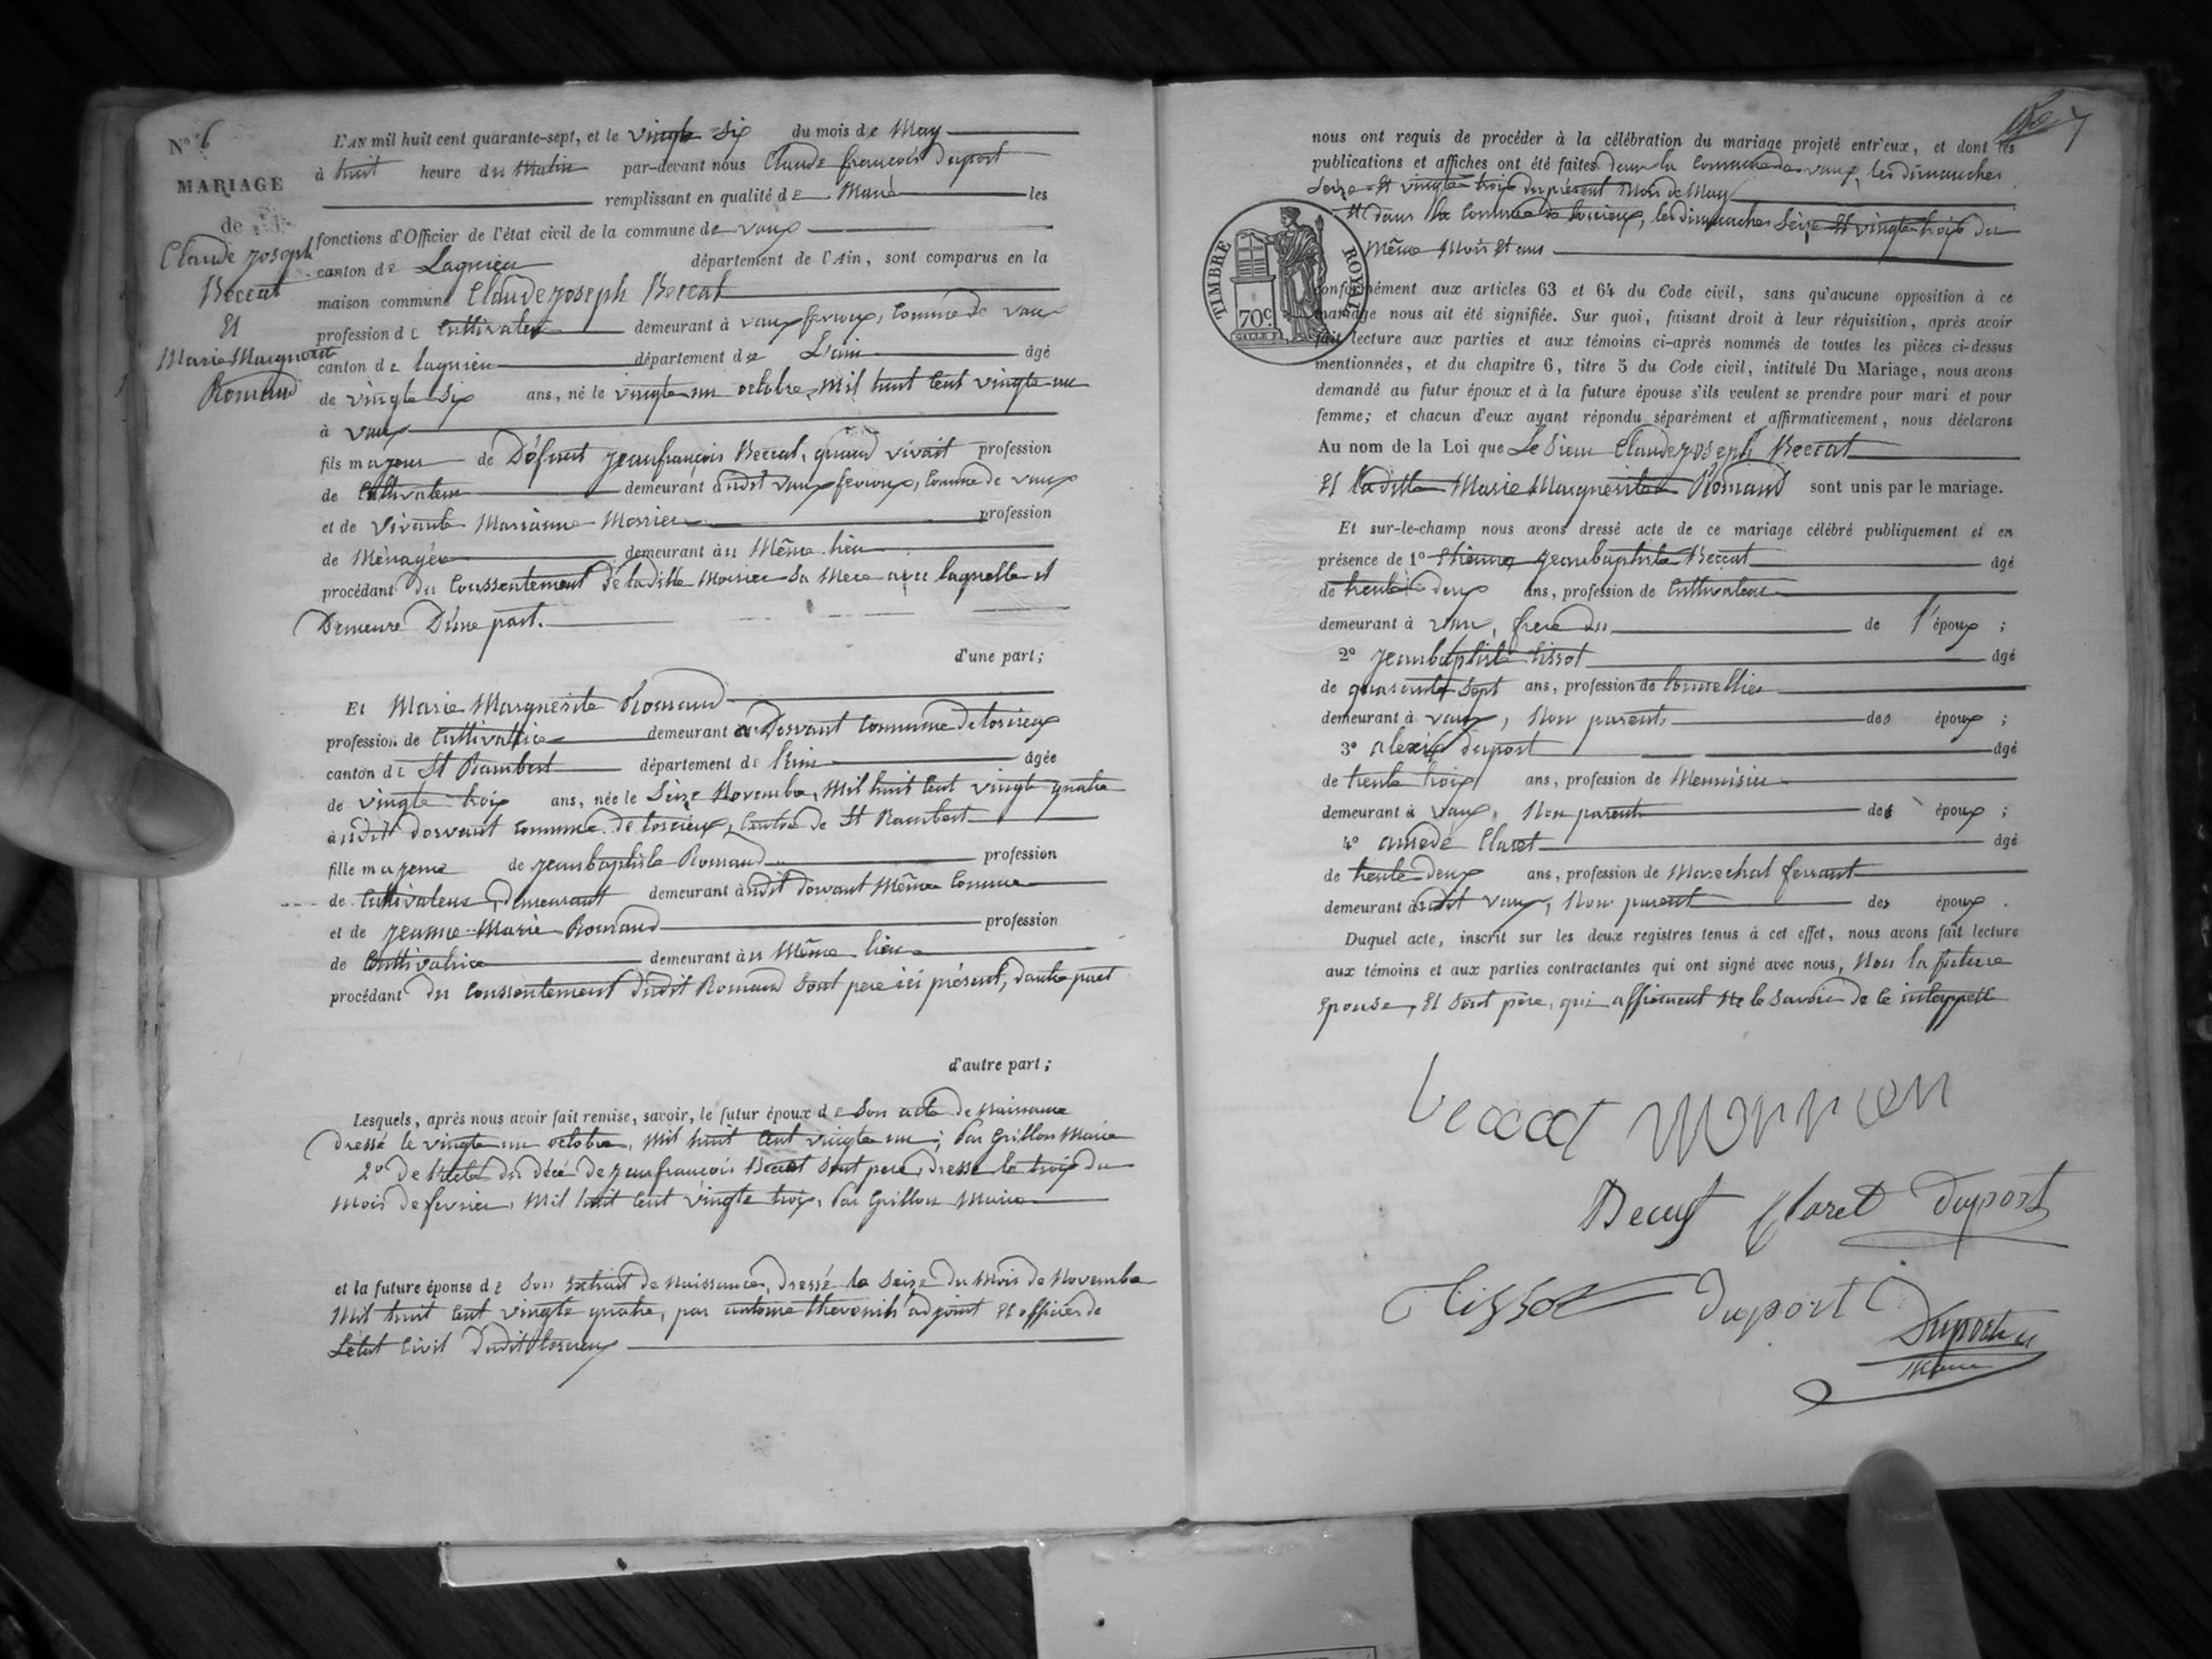 N° 6
MARIAGE
de
Claude Joseph
Beccat
Et
Marie Marguerite
Romand
L'AN mil huit cent quarante-sept, et le vingte six du mois de May
à huit heure du Matin par-devant nous Claude françois duport
remplissant en qualité de Maire les
fonctions d'Officier de l'état civil de la commune de vaux
canton de Lagnieu département de l'Ain, sont comparus en la
maison commune Claude Joseph Beccat
profession de Cultivateur demeurant à vaux fevroux, Commune de vaux
canton de lagnieu département de L'ain âgé
de vingte six ans, né le vingte un octobre, Mil huit Cent vingte un
à vaux
fils majeur de Défunt Jean françois Beccat, quand vivait profession
de Cultivateur demeurant audit vaux fevroux, Commune de vaux
et de vivante Marianne Morrier profession
de Ménagée demeurant au Même lieu
procédant du Conssentement de ladite Morrier Sa Mere avec laquelle il
Demeure D'une part.
d'une part;
Et Marie Marguerite Romand
profession de Cultivatrice demeurant à Dorvant Commune de torcieux
canton de St Rambert département de l'ain âgée
de vingte trois ans, née le Seize Novembre, Mil huit Cent vingte quatre
audit dorvant Commune de torcieux, Canton de St Rambert
fille majeure de Jean baptiste Romand profession
de Cultivateur, demeurant demeurant audit dorvant Même Commune
et de Jeanne Marie Romand profession
de Cultivatrice demeurant au Même lieu
procédant du Conssentement dudit Romand Sont pere ici présent, dautre part
d'autre part;
Lesquels, après nous avoir fait remise, savoir, le futur époux de Son acte de Naissance
dressé le vingte un octobre, Mil huit Cent vingte un; Par Grillon Maire
2° De l'acte du décé de Jean françois Beccat Sont pere, dressé le trois du
Mois de fevrier, Mil huit Cent vingte trois, Par Grillon Maire
et la future épouse de Son Extrait de Naissance, dressé le Seize du Mois de Novembre
Mil huit Cent vingte quatre, par antoine thevenin adjoint Et officier de
L'état Civil dudit torcieux
nous ont requis de procéder à la célébration du mariage projeté entr'eux, et dont les
publications et affiches ont été faites dans la Commune de vaux, les dimanches
Seize Et vingte trois du présent Mois de May
Et dans la Commune de torcieux, les dimanches Seize Et vingte trois du
Même Mois Et an
TIMBRE ROYAL
70c
conformément aux articles 63 et 64 du Code civil, sans qu'aucune opposition à ce
mariage nous ait été signifiée. Sur quoi, faisant droit à leur réquisition, après avoir
fait lecture aux parties et aux témoins ci-après nommés de toutes les pièces ci-dessus
mentionnées, et du chapitre 6, titre 5 du Code civil, intitulé Du Mariage, nous avons
demandé au futur époux et à la future épouse s'ils veulent se prendre pour mari et pour
femme; et chacun d'eux ayant répondu séparément et affirmativement, nous déclarons
Au nom de la Loi que Le Sieur Claude Joseph Beccat
Et ladite Marie Marguerite Romand sont unis par le mariage.
Et sur-le-champ nous avons dressé acte de ce mariage célébré publiquement et en
présence de 1° Etienne Jean baptiste Beccat âgé
de trente deux ans, profession de Cultivateur
demeurant à vaux, frere du de l'époux;
2° Jean baptiste tissot âgé
de quarante Sept ans, profession de tonnellier
demeurant à vaux, Non parent des époux;
3° alexis duport âgé
de trente trois ans, profession de Menuisier
demeurant à vaux, Non parent des époux;
4° amedé Claret âgé
de trente deux ans, profession de Marechal ferrant
demeurant audit vaux, Non parent des époux.
Duquel acte, inscrit sur les deux registres tenus à cet effet, nous avons fait lecture
aux témoins et aux parties contractantes qui ont signé avec nous, Non la future
Epouse, Et Sont père, qui affirment Ne le Savoir de ce interppellé
beccat Morrier
Beccat Claret Duport
Tissot Duport
Duport
Maire